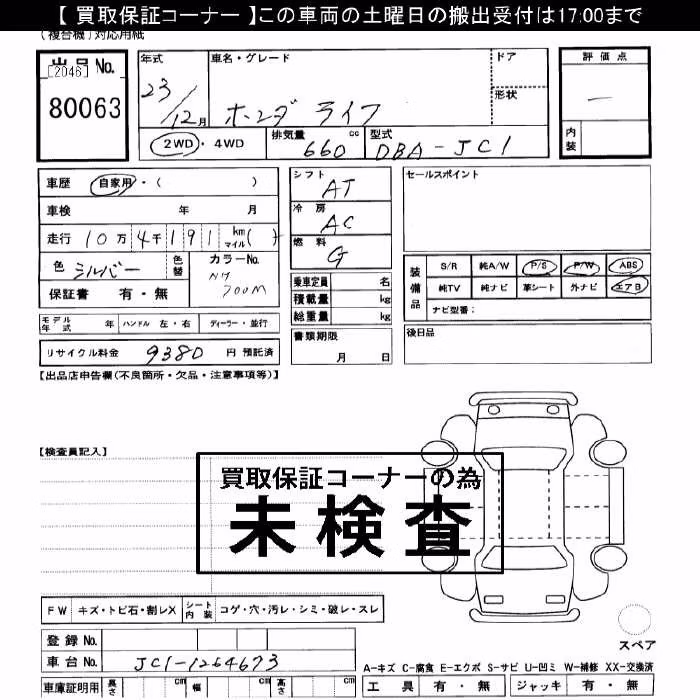 【 買取保証コーナー 】この車両の土曜日の搬出受付は17:00まで
(複合機)対応用紙
出品 No.
[2046]
80063
年式 23/12月
車名・グレード ホンダ ライフ
ドア
形状
評価点
—
内装
2WD・4WD
排気量 660 cc
型式 DBA-JC1
車歴 自家用・( )
車検 年 月
走行 10万4千191 km マイル( )
色 シルバー 色替
カラーNo. NH700M
保証書 有・無
シフト AT
冷房 AC
燃料 G
乗車定員 名
積載量 kg
総重量 kg
書類期限 月 日
セールスポイント
装備品
S/R 純A/W P/S P/W ABS
純TV 純ナビ 革シート 外ナビ エアB
ナビ型番:
後日品
モデル年式 年 ハンドル 左・右 ディーラー・並行
リサイクル料金 9380 円 預託済
【出品店申告欄(不良箇所・欠品・注意事項等)】
【検査員記入】
買取保証コーナーの為
未検査
FW キズ・トビ石・割レX シート内装 コゲ・穴・汚レ・シミ・破レ・スレ
登録 No.
車台 No. JC1-1264673
車庫証明用 長さ cm 幅 cm 高さ cm
スペア
A-キズ C-腐食 E-エクボ S-サビ U-凹ミ W-補修 XX-交換済
工具 有・無 ジャッキ 有・無